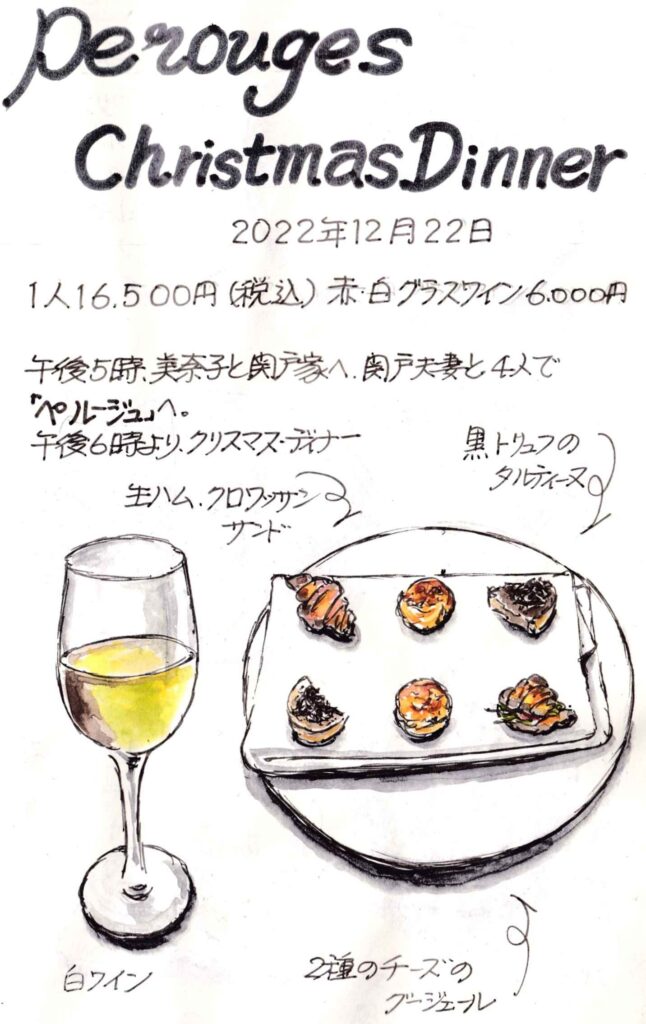 Perouges
Christmas Dinner
2022年12月22日
1人16.500円(税込) 赤・白グラスワイン6.000円
午後5時、美奈子と関戸家へ、関戸夫妻と4人で
「ペルージュ」へ。
午後6時より、クリスマスディナー
黒トリュフの
タルティーヌ
生ハム、クロワッサン
サンド
白ワイン
2種のチーズの
グージェール